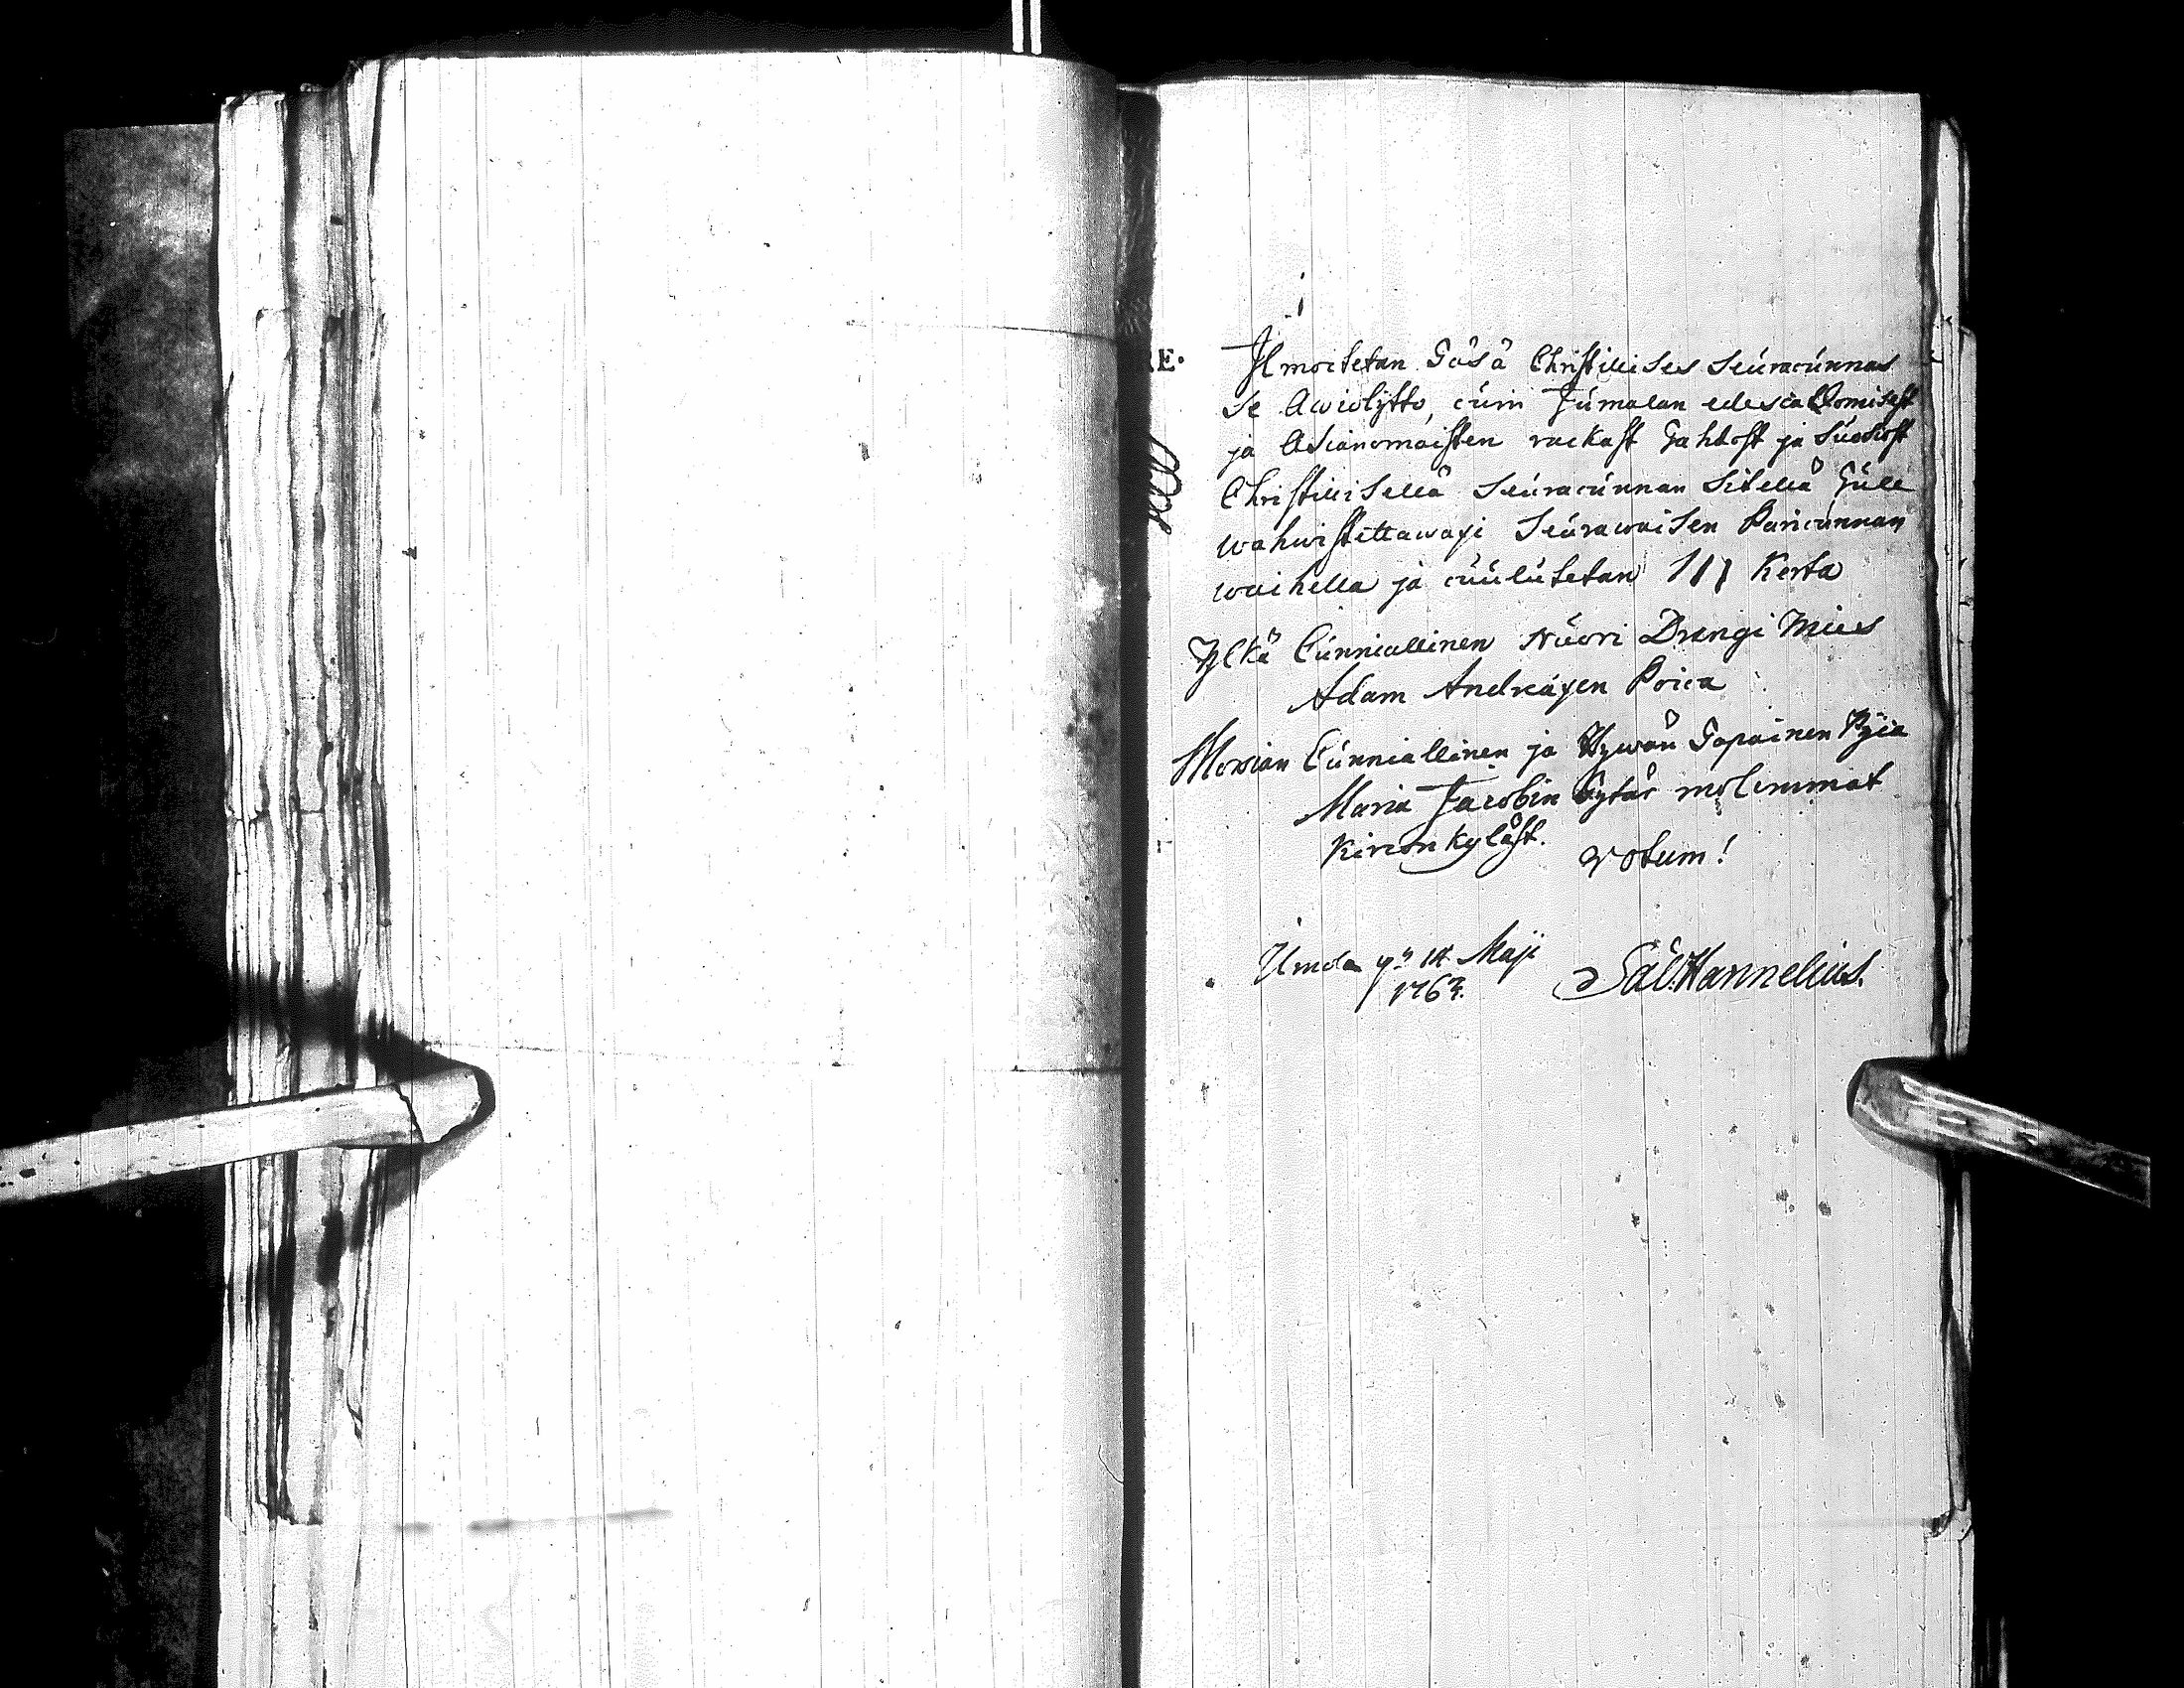 RE.
Ilmoitetan Täsä Christilises Seuracunnas
Se Awiolijtto, cuin Jumalan edes ca
ja Asianomaisten rackast Tahdost ja Suosiost
Christilisellä Seuracunnan Sitellä Tule
wahwistettawaxi Seurawaisen Paricunnan
waihella ja cuulutetan III Kerta
Yljkä Cunniallinen Nuori Drengi Mies
Adam Andreaxen Poica
Morsian Cunniallinen ja Hywän Tapainen Pijca
Maria Jacobin Tytär molemmat
Kircon kyläst.
Votum!
14 Maji
1763.
Sal. Hannelius.